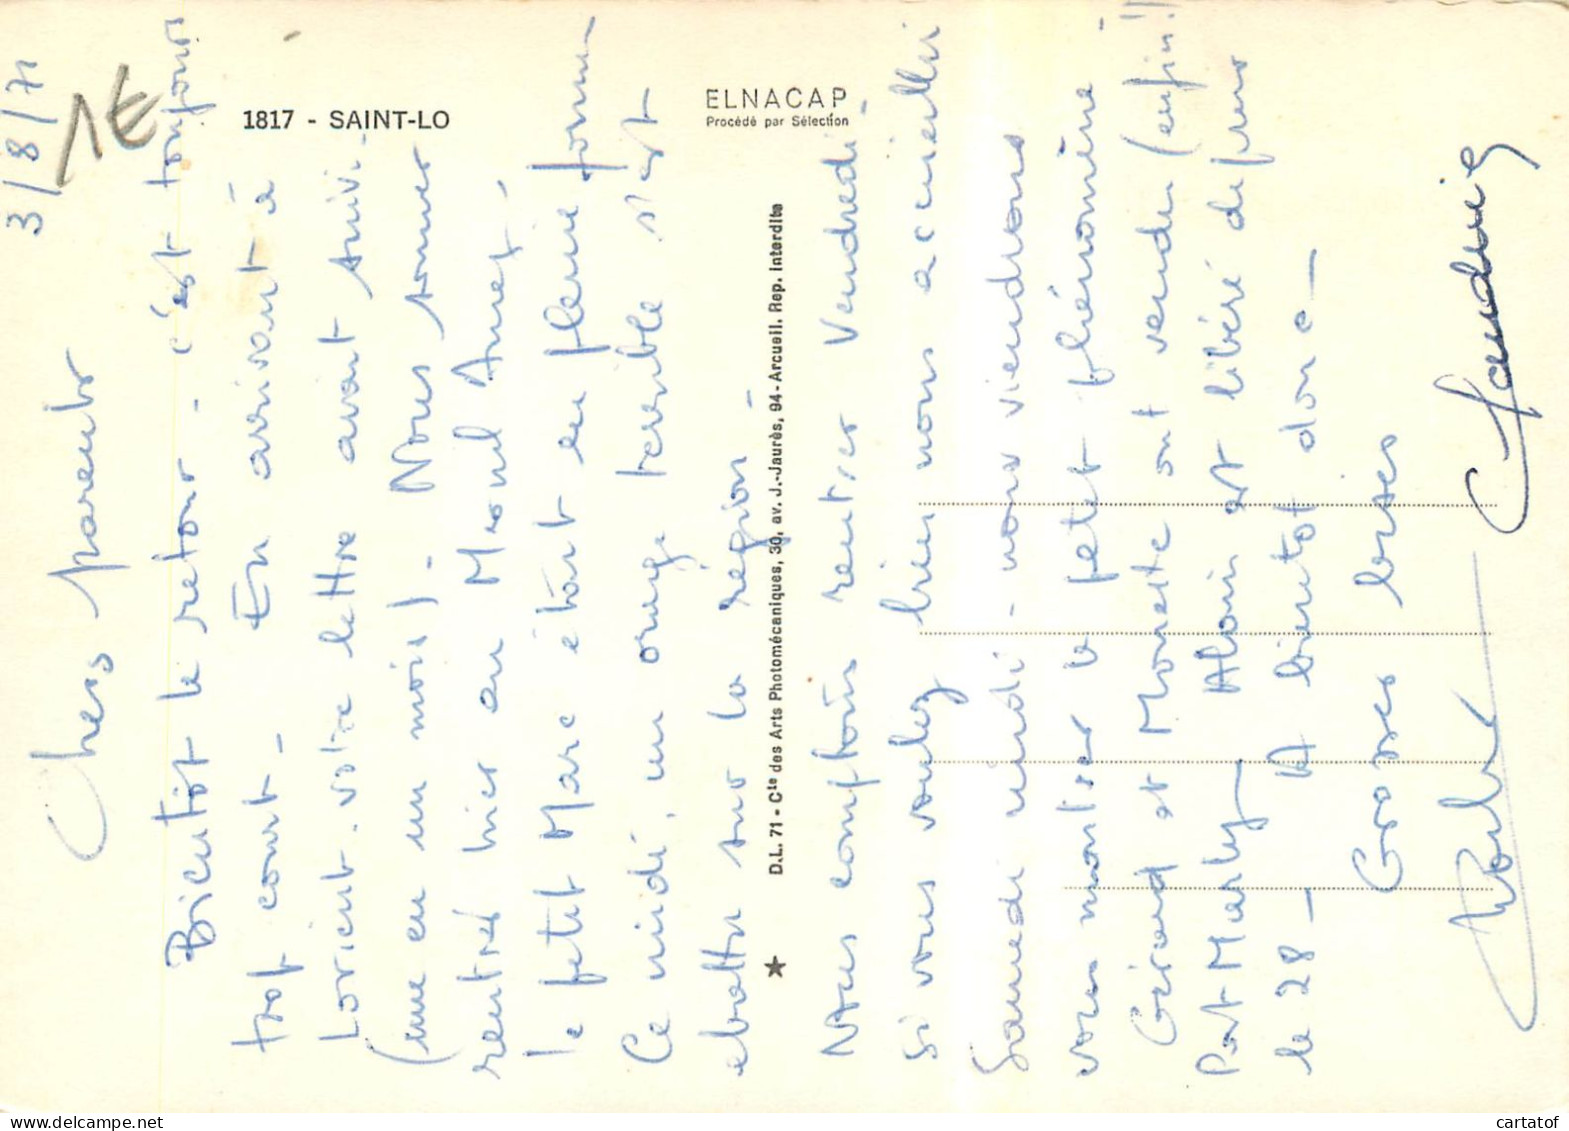 3/8/71
1€
1817 - SAINT-LO
ELNACAP
Procédé par Sélection
D.L. 71 - Cie des Arts Photomécaniques, 30, av. J.-Jaurès, 94 - Arcueil. Rep. Interdite
Chers parents
Bientôt le retour - c'est toujours
trop court - En arrivant à
Lorient. votre lettre avant suivi
(une en un mois) - Nous sommes
rentrés hier au
le petit Marc étant en pleine forme -
Ce midi, un orage terrible s'est
abattu sur la région -
Nous comptons rentrer Vendredi -
si vous voulez bien nous accueillir
Samedi midi - nous viendrons
vous montrer le petit phénomène -
Gérard et Monette ont vendu (enfin!!)
Port Marly - Alain est libéré depuis
le 28 - A bientôt donc -
Grosses bises
cartatof